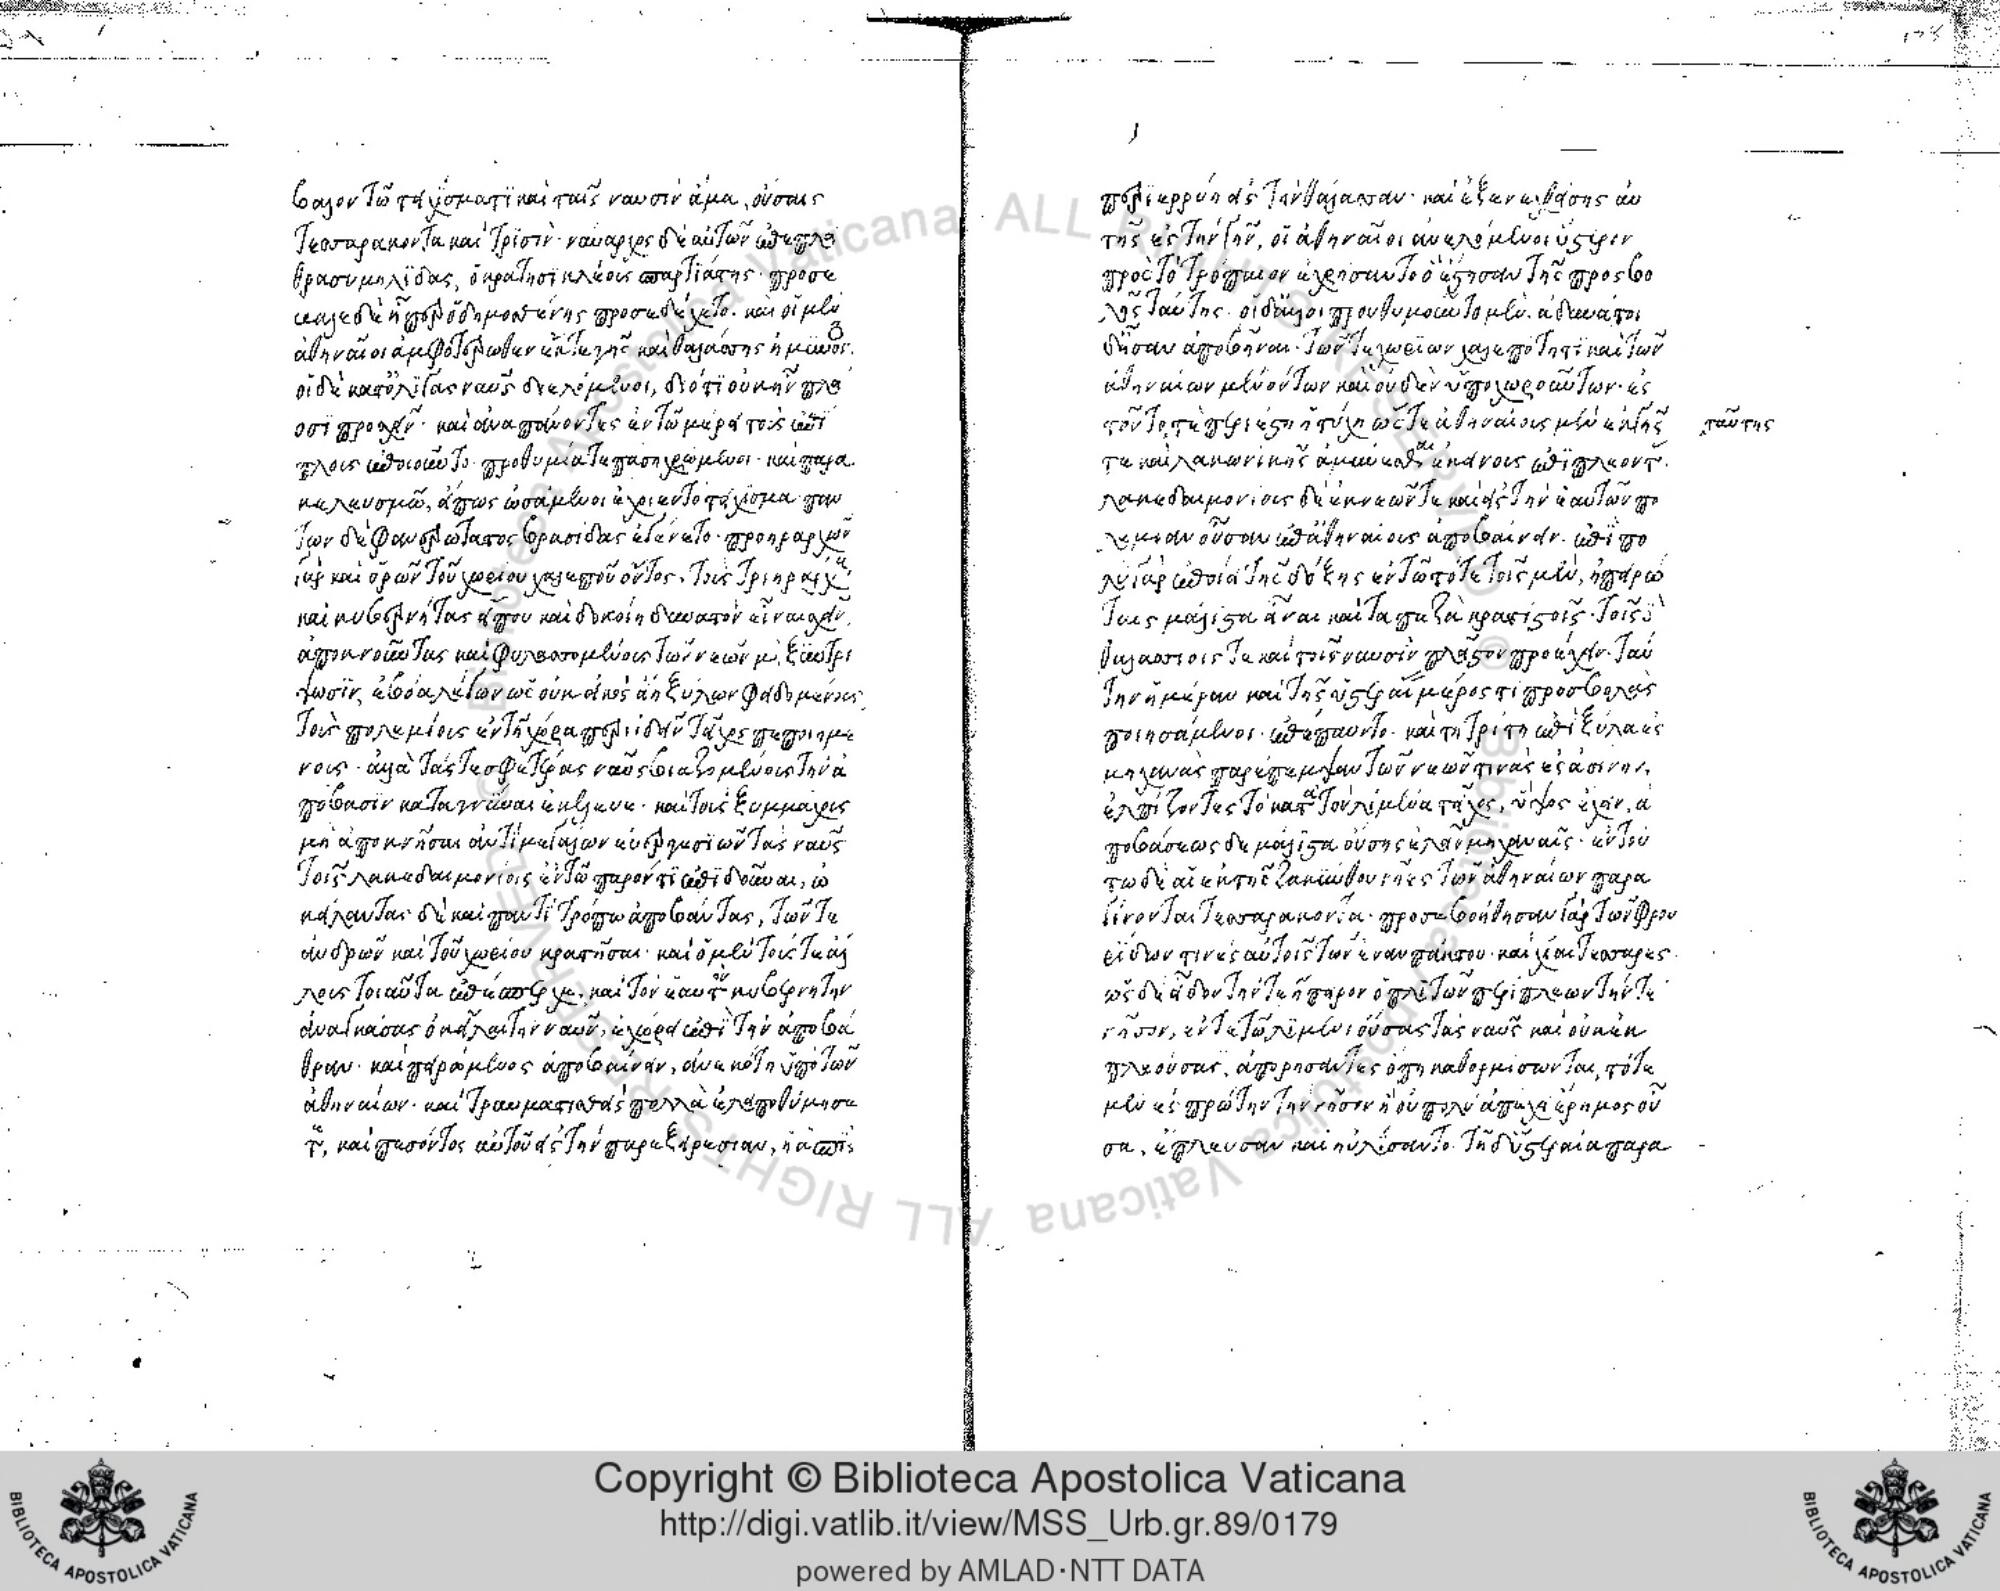 βαλον τῶ τειχίσματι καὶ ταῖς ναυσὶν ἅμα, οὔσαις
τεσσαράκοντα καὶ τρισὶν· ναύαρχος δὲ αὐτῶν ἐπέπλει
θρασυμηλίδας, ὁ κρατησικλέους σπαρτιάτης· προσέ
βαλε δὲ ἧπερ ὁ δημοσθένης προσεδέχετο· καὶ οἱ μὲν
ἀθηναῖοι ἀμφοτέρωθεν ἔκ τε γῆς καὶ θαλάσσης ἠμύνοντο·
οἱ δὲ κατ' ὀλίγας ναῦς διελόμενοι, διότι οὐκ ἦν πλεί
οσι προσχεῖν· καὶ ἀναπαύοντες ἐν τῶ μέρει τοὺς ἐπί
πλους ἐποιοῦντο· προθυμία τε πάση χρώμενοι· καὶ παρα
κελευσμῶ, εἴ πως ὠσάμενοι ἕλοιεν τὸ τείχισμα· πάν
των δὲ φανερώτατος βρασίδας ἐγένετο· τριηραρχῶν
γὰρ καὶ ὁρῶν τοῦ χωρίου χαλεποῦ ὄντος, τοὺς τριηράρχους
καὶ κυβερνήτας εἴ που καὶ δοκοίη δυνατὸν εἶναι σχεῖν,
ἀποκνοῦντας καὶ φυλασσομένους τῶν νεῶν μὴ ξυντρί
ψωσιν, ἐβόα λέγων ὡς οὐκ εἰκὸς εἴη ξύλων φειδομένους
τοὺς πολεμίους ἐν τῆ χώρα περιιδεῖν τεῖχος πεποιημέ
νους· ἀλλὰ τάς τε σφετέρας ναῦς βιαζομένους τὴν ἀ
πόβασιν καταγνύναι ἐκέλευε· καὶ τοὺς ξυμμάχους
μὴ ἀποκνῆσαι ἀντὶ μεγάλων εὐεργεσιῶν τὰς ναῦς
τοῖς λακεδαιμονίοις ἐν τῶ παρόντι ἐπιδοῦναι, ὀ
κείλαντας δὲ καὶ παντὶ τρόπω ἀποβάντας, τῶν τε
ἀνδρῶν καὶ τοῦ χωρίου κρατῆσαι· καὶ ὁ μὲν τούς τε ἄλ
λους τοιαῦτα ἐπέσπερχε, καὶ τὸν ἑαυτοῦ κυβερνήτην
ἀναγκάσας ὀκεῖλαι τὴν ναῦν, ἐχώρει ἐπὶ τὴν ἀποβά
θραν· καὶ πειρώμενος ἀποβαίνειν, ἀνεκόπη ὑπὸ τῶν
ἀθηναίων· καὶ τραυματισθεὶς πολλὰ ἐλειποθύμησέ
τε, καὶ πεσόντος αὐτοῦ ἐς τὴν παρεξειρεσίαν, ἡ ἀσπὶς
περιερρύη ἐς τὴν θάλασσαν· καὶ ἐξενεχθείσης αὐ
τῆς ἐς τὴν γῆν, οἱ ἀθηναῖοι ἀνελόμενοι ὕστερον
πρὸς τὸ τρόπαιον ἐχρήσαντο ὃ ἔστησαν τῆς προσβο
λῆς ταύτης· οἱ δ' ἄλλοι προυθυμοῦντο μὲν· ἀδύνατοι
δ' ἦσαν ἀποβῆναι· τῶν τε χωρίων χαλεπότητι καὶ τῶν
ἀθηναίων μενόντων καὶ οὐδὲν ὑποχωρούντων· ἐς
τοῦτό τε περιέστη ἡ τύχη ὥστε ἀθηναίους μὲν ἐκ γῆς
ταύτης
τε καὶ λακωνικῆς ἀμύνεσθαι ἐκείνους ἐπιπλέοντας·
λακεδαιμονίους δὲ ἐκ νεῶν τε καὶ ἐς τὴν ἑαυτῶν πο
λεμίαν οὖσαν ἐπ' ἀθηναίους ἀποβαίνειν· ἐπὶ πο
λὺ γὰρ ἐποίει τῆς δόξης ἐν τῶ τότε τοῖς μὲν, ἠπειρώ
ταις μάλιστα εἶναι καὶ τὰ πεζὰ κρατίστοις· τοῖς δὲ
θαλασσίοις τε καὶ ταῖς ναυσὶν πλεῖστον προέχειν· ταύ
την ἡμέραν καὶ τῆς ὑστεραίας μέρος τι προσβολὰς
ποιησάμενοι· ἐπέπαυντο· καὶ τῆ τρίτη ἐπὶ ξύλα ἐς
μηχανὰς παρέπεμψαν τῶν νεῶν τινὰς ἐς ἀσίνην,
ἐλπίζοντες τὸ κατὰ τὸν λιμένα τεῖχος, ὕψος ἔχειν, ἀ
ποβάσεως δὲ μάλιστα οὔσης ἑλεῖν μηχαναῖς· ἐν τού
τω δὲ αἱ ἐκ τῆς ζακύνθου νῆες τῶν ἀθηναίων παρα
γίνονται τεσσαράκοντα· προσεβοήθησαν γὰρ τῶν φρου
ρίδων τινὲς αὐτοῖς τῶν ἐκ ναυπάκτου· καὶ χῖαι τέσσαρες·
ὡς δὲ εἶδον τήν τε ἤπειρον ὁπλιτῶν περίπλεων τήν τε
νῆσον, ἔν τε τῶ λιμένι οὔσας τὰς ναῦς καὶ οὐκ ἐκ
πλεούσας, ἀπορήσαντες ὅπη καθορμίσωνται, τότε
μὲν ἐς πρώτην τὴν νῆσον ἣ οὐ πολὺ ἀπέχει ἔρημος οὖ
σα, ἔπλευσαν καὶ ηὐλίσαντο· τῆ δ' ὑστεραία παρα
Copyright © Biblioteca Apostolica Vaticana
http://digi.vatlib.it/view/MSS_Urb.gr.89/0179
powered by AMLAD·NTT DATA
BIBLIOTECA APOSTOLICA VATICANA
BIBLIOTECA APOSTOLICA VATICANA